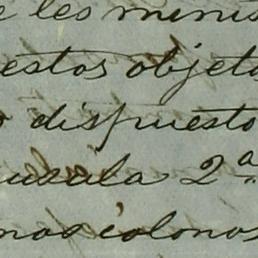 e les minis
estos objeto
o dispuesto
ausula 2ª
nos colonos